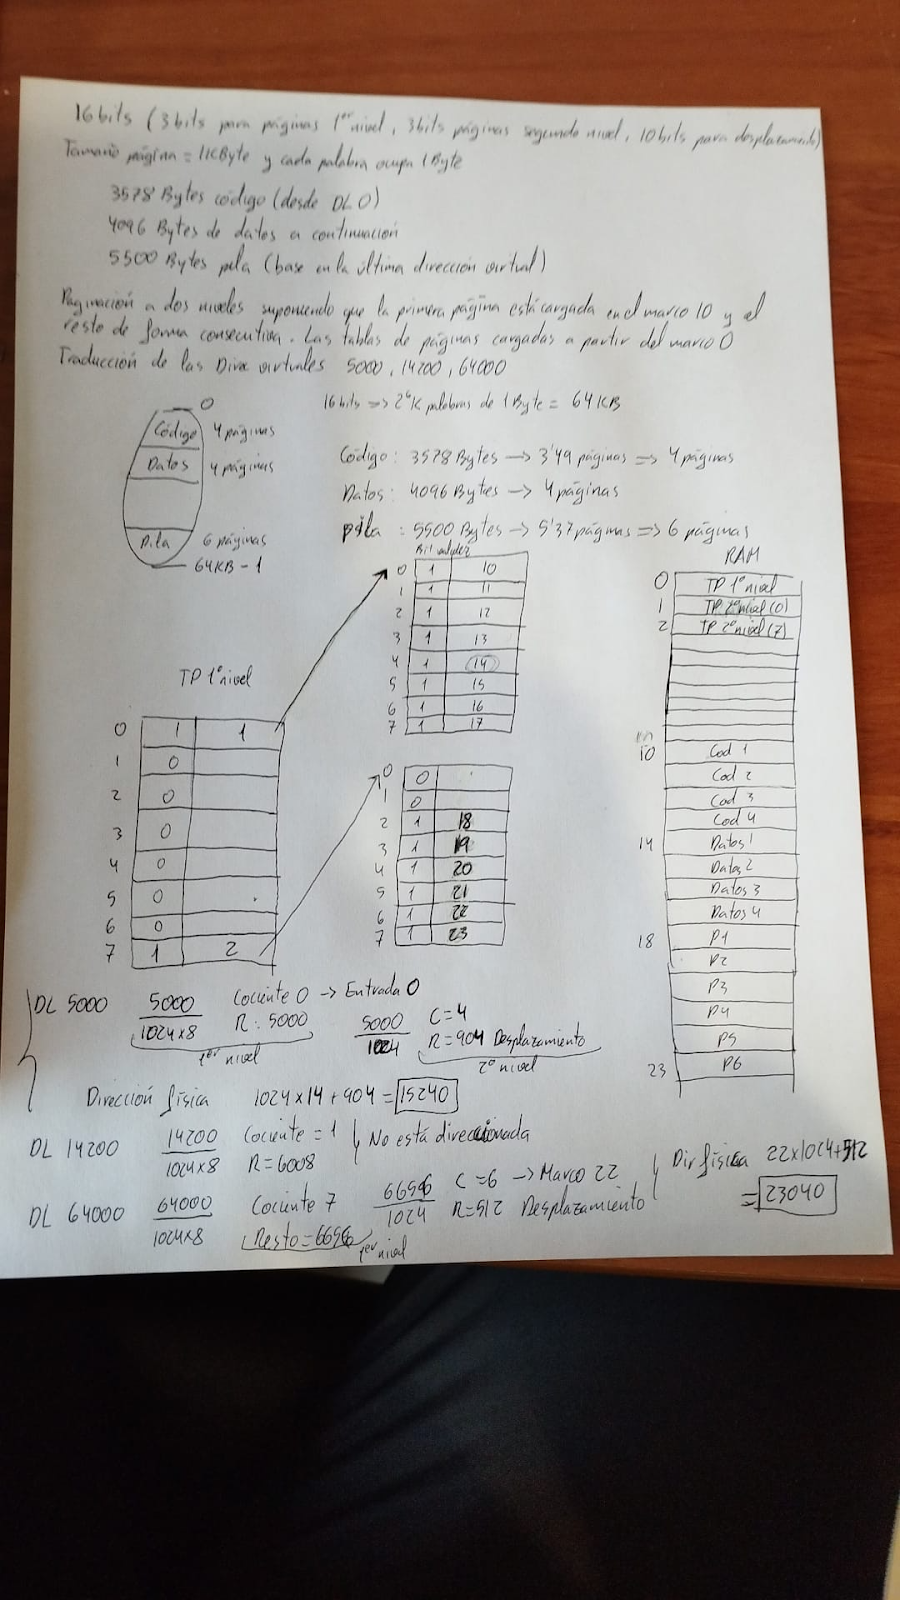 16bits (3bits para páginas 1er nivel, 3bits páginas segundo nivel, 10bits para desplazamiento)
Tamaño página = 1KByte y cada palabra ocupa 1Byte
3578 Bytes código (desde DL 0)
4096 Bytes de datos a continuación
5500 Bytes pila (base en la última dirección virtual)
Paginación a dos niveles suponiendo que la primera página está cargada en el marco 10 y el
resto de forma consecutiva. Las tablas de páginas cargadas a partir del marco 0
Traducción de las Dirx virtuales 5000, 14200, 64000
0
Código 4 páginas
Datos 4 páginas
Pila 6 páginas
64KB-1
16bits => 2⁶K palabras de 1Byte = 64KB
Código: 3578 Bytes -> 3'49 páginas => 4 páginas
Datos: 4096 Bytes -> 4 páginas
pila: 5500 Bytes -> 5'37 páginas => 6 páginas
Bit validez
0 1 10
1 1 11
2 1 12
3 1 13
4 1 14
5 1 15
6 1 16
7 1 17
TP 1º nivel
0 1 1
1 0
2 0
3 0
4 0
5 0
6 0
7 1 2
0 0
1 0
2 1 18
3 1 19
4 1 20
5 1 21
6 1 22
7 1 23
RAM
0 TP 1º nivel
1 TP 2º nivel (0)
2 TP 2º nivel (7)
10 Cod 1
Cod 2
Cod 3
Cod 4
14 Datos 1
Datos 2
Datos 3
Datos 4
18 P1
P2
P3
P4
P5
23 P6
DL 5000 5000 Cociente 0 -> Entrada 0
1024x8 R: 5000
1er nivel
5000 C=4
1024 R=904 Desplazamiento
2º nivel
Dirección física 1024x14+904=15240
DL 14200 14200 Cociente = 1 No está direccionada
1024x8 R=6008
DL 64000 64000 Cociente 7
1024x8 Resto=6656 1er nivel
6656 C=6 -> Marco 22
1024 R=512 Desplazamiento
Dir física 22x1024+512
=23040